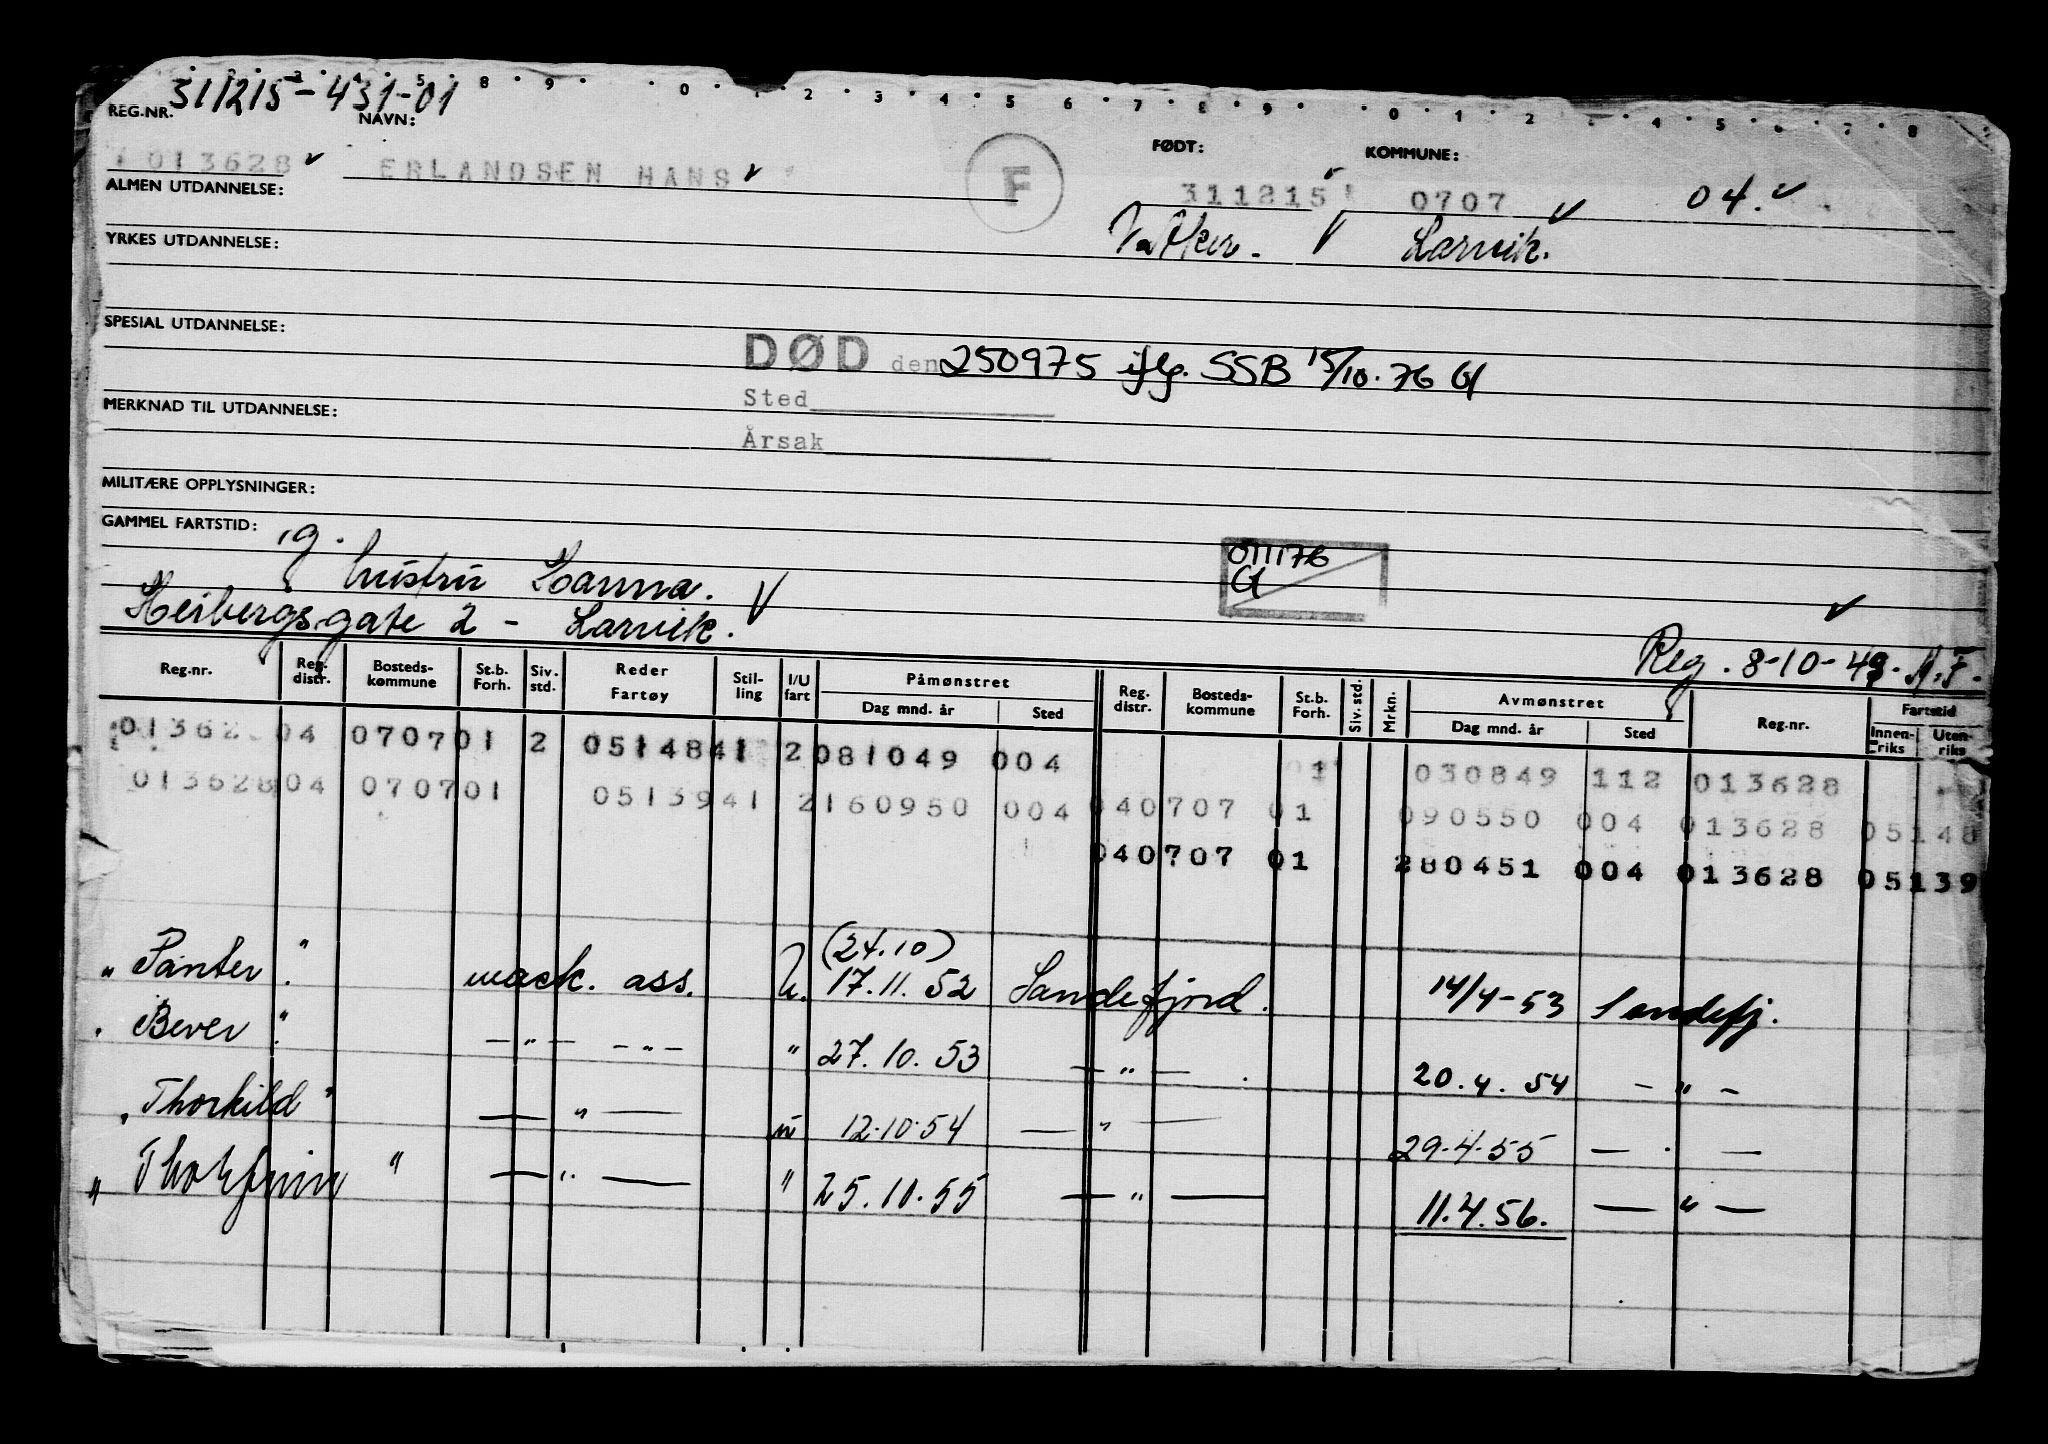 311215-431-01
REG.NR.
NAVN:
FØDT:
KOMMUNE:
013628 ERLANDSEN HANS F 311215 0707 04.
ALMEN UTDANNELSE:
Larvik.
YRKES UTDANNELSE:
SPESIAL UTDANNELSE:
DØD den 250975 iflg. SSB 15/10.76 Gl
Sted
MERKNAD TIL UTDANNELSE:
Årsak
MILITÆRE OPPLYSNINGER:
GAMMEL FARTSTID:
g.
hustru Hanna.
011176
Gl
Heibergsgate 2 - Larvik.
Reg. 8-10-49. A.F.
Reg.nr. Reg. distr. Bosteds-kommune St.b. Forh. Siv. std. Reder Fartøy Stil-ling I/U fart Påmønstret Dag mnd. år Sted Reg. distr. Bosteds-kommune St.b. Forh. Siv. std. Mrkn. Avmønstret Dag mnd. år Sted Reg.nr. Fartstid Innen-riks Uten-riks
01362 04 0707 01 2 05148 41 2 081049 004 01 030849 112 013628
013628 04 0707 01 05139 41 2 160950 004 04 0707 01 090550 004 013628 05148
04 0707 01 280451 004 013628 05139
(24.10)
" Panter " mask. ass. U. 17.11.52 Sandefjord. 14/4-53 Sandefj.
" Bever " - " - - " - " 27.10.53 - " - 20.4.54 - " -
" Thorkild " - " - " 12.10.54 - " - 29.4.55 - " -
" Thorfinn " - " - " 25.10.55 - " - 11.4.56. - " -